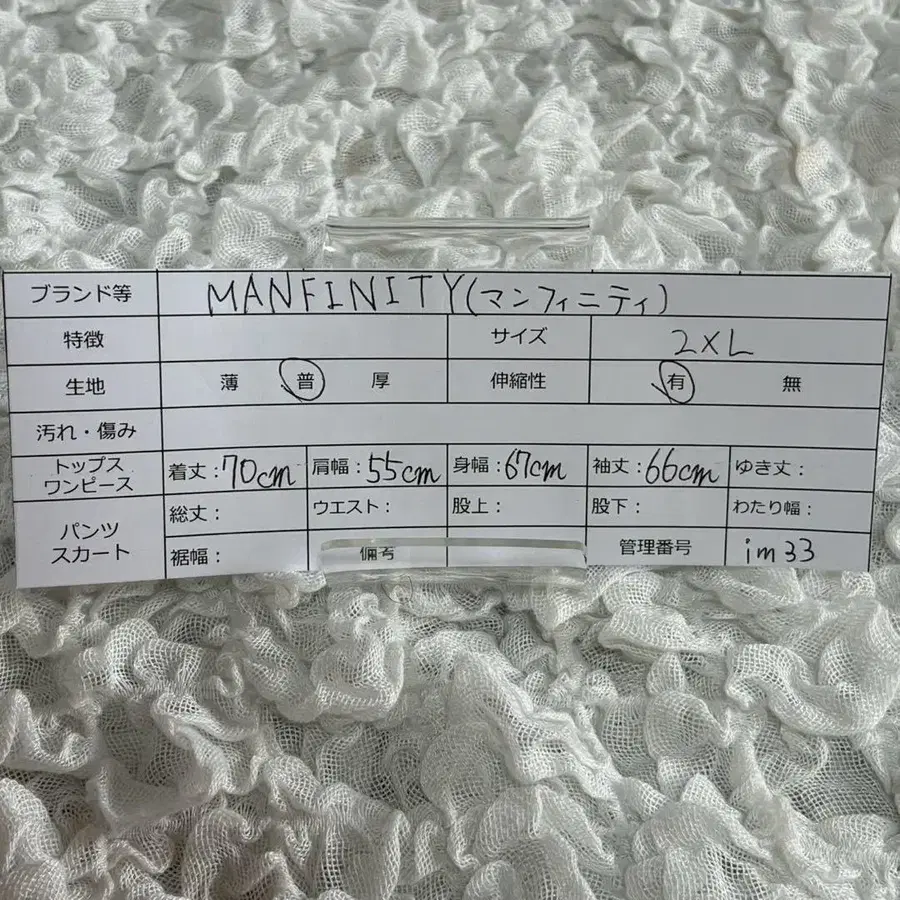 ブランド等 MANFINITY(マンフィニティ)
特徴 サイズ 2XL
生地 薄 普 厚 伸縮性 有 無
汚れ・傷み
トップス
ワンピース
着丈:70cm 肩幅:55cm 身幅:67cm 袖丈:66cm ゆき丈:
パンツ
スカート
総丈: ウエスト: 股上: 股下: わたり幅:
裾幅: 備考 管理番号 im33